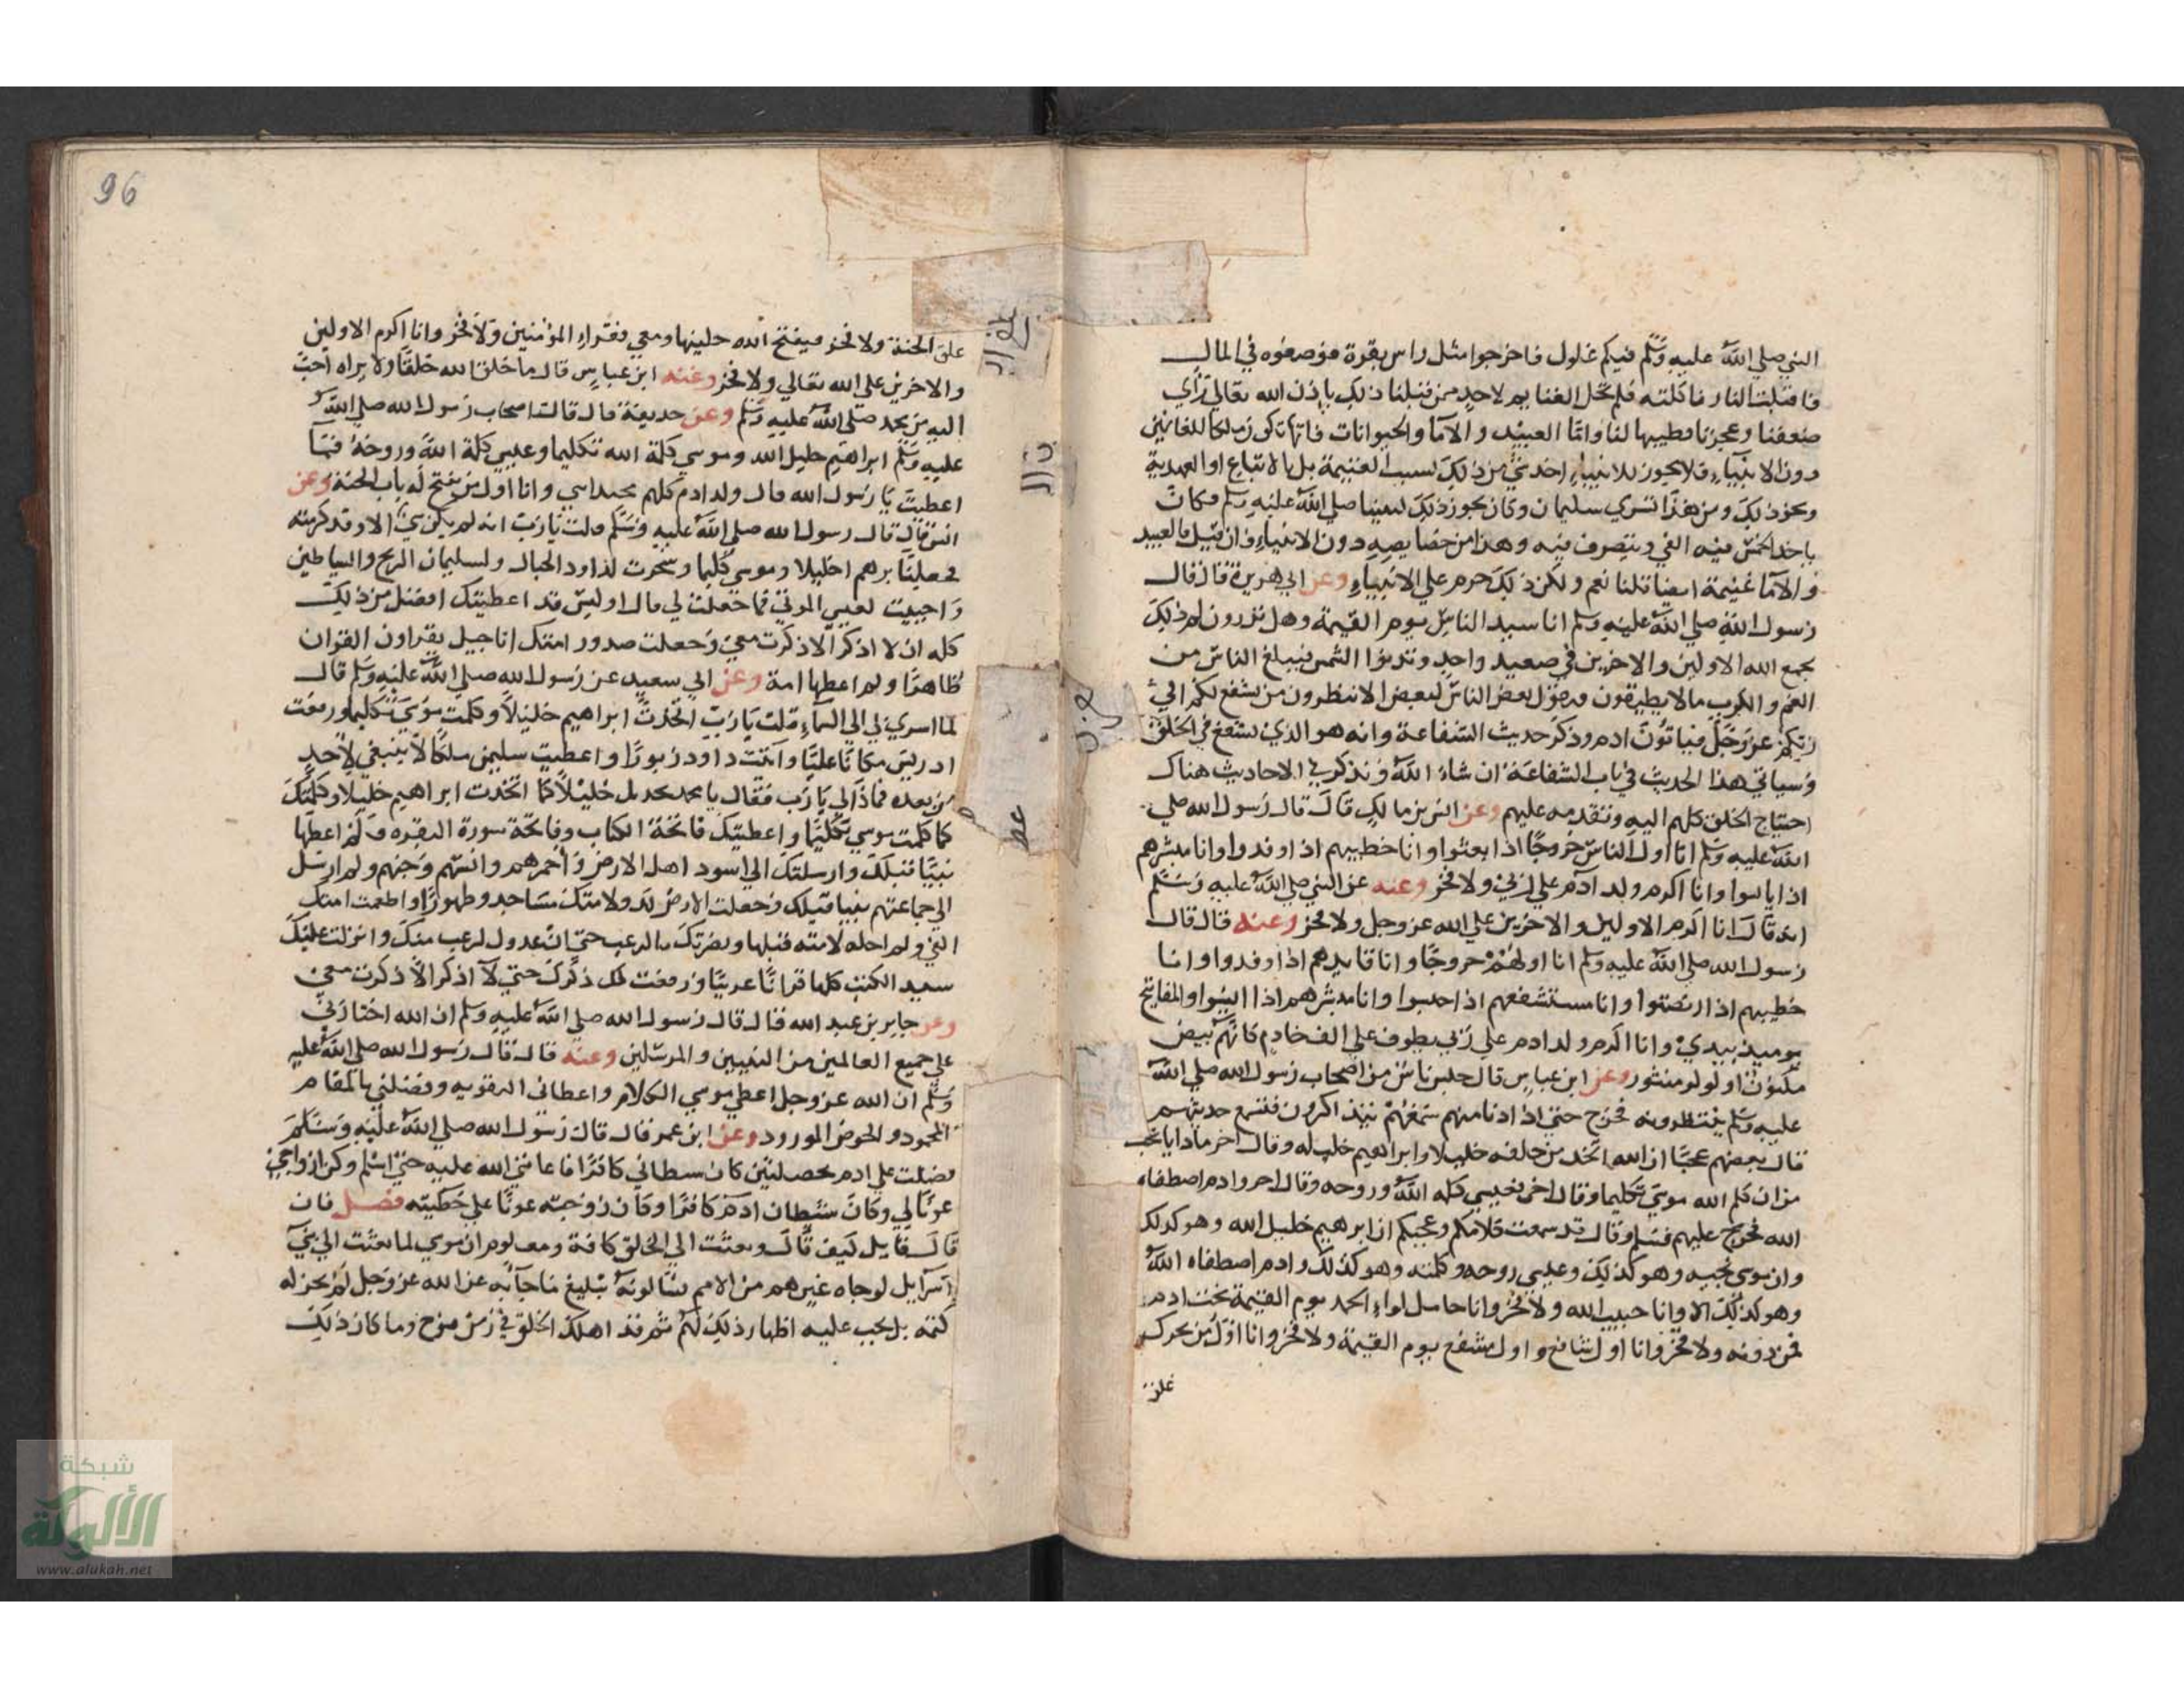 النبي صلي الله عليه وسلم فيكم غلول فاخرجوا مثل راس بقرة فوضعوه في المال
فاقبلت النار فاكلته فلم تحل الغنايم لاحد ممن قبلنا ذلك باذن الله تعالي راي
ضعفنا وعجزنا فطيبها لنا واما العبيد والآماء والحيوانات فانها تكون ملكا للغانمين
دون الانبياء فلا يجوز للانبياء اخذ شي من ذلك لسبب الغنيمة بل بالابتباع او الهدية
ونحو ذلك ومن هذا تسري سليمان وكان يجوز ذلك لنبينا صلي الله عليه وسلم فكان
ياخذ الخمس فيه الفي ويتصرف فيه وهذا من خصايصه دون الانبياء فان قيل فالعبيد
والآماء غنيمة ايضا قلنا نعم ولكن ذلك حرم علي الانبياء وعن ابي هريرة قال قال
رسول الله صلي الله عليه وسلم انا سيد الناس يوم القيمة وهل تدرون لم ذلك
يجمع الله الاولين والاخرين في صعيد واحد وتدنوا الشمس فيبلغ الناس من
الغم والكرب مالا يطيقون فيقول بعض الناس لبعض الا تنظرون من يشفع لكم الي
ربكم عز وجل فياتون ادم وذكر حديث الشفاعة وانه هو الذي يشفع في الخلق
وسياتي هذا الحديث في باب الشفاعة ان شاء الله ونذكر في الاحاديث هناك
احتياج الخلق كلهم اليه وتقدمه عليهم وعن انس بن مالك قال قال رسول الله صلي
الله عليه وسلم انا اول الناس خروجا اذا بعثوا وانا خطيبهم اذا وفدوا وانا مبشرهم
اذا ايسوا وانا اكرم ولد آدم علي ربي ولا فخر وعنه عن النبي صلي الله عليه وسلم
انه قال انا اكرم الاولين والاخرين علي الله عز وجل ولا فخر وعنه قال قال
رسول الله صلي الله عليه وسلم انا اولهم خروجا وانا قايدهم اذا وفدوا وانا
خطيبهم اذا انصتوا وانا مستشفعهم اذا حبسوا وانا مبشرهم اذا ايسوا والمفاتيح
يوميذ بيدي وانا اكرم ولد ادم علي ربي يطوف علي الف خادم كانهم بيض
مكنون او لولو منثور وعن ابن عباس قال جلس ناس من اصحاب رسول الله صلي الله
عليه وسلم ينتظرونه فخرج حتي اذا دنا منهم سمعهم يتذاكرون فتسمع حديثهم
فقال بعضهم عجبا ان الله اتخذ من خلقه خليلا وابراهيم خليله وقال اخر ماذا ياعجب
من ان كلم الله موسي تكليما وقال اخر فعيسي كلمة الله وروحه وقال اخر وادم اصطفاه
الله فخرج عليهم فسلم وقال قد سمعت كلامكم وعجبكم ان ابرهيم خليل الله وهو كذلك
وان موسي نجيه وهو كذلك وعيسي روحه وكلمته وهو كذلك وادم اصطفاه الله
وهو كذلك الا وانا حبيب الله ولا فخر وانا حامل لواء الحمد يوم القيمة تحته ادم
فمن دونه ولا فخر وانا اول شافع واول مشفع يوم القيمة ولا فخر وانا اول من يحرك
96
علق الجنة ولا فخر فيفتح الله فيدخلنيها ومعي فقراء المؤمنين ولا فخر وانا اكرم الاولين
والاخرين علي الله تعالي ولا فخر وعنه ابن عباس قال ما خلق الله خلقا ولا براه احب
اليه من محمد صلي الله عليه وسلم وعن حذيفة قال قالت اصحاب رسول الله صلي الله
عليه وسلم ابراهيم خليل الله وموسي كلمه الله تكليما وعيسي كلمة الله وروحه فما
اعطيت يا رسول الله قال ولد ادم كلهم تحت رايتي وانا اول من يفتح له باب الجنة وعن
انس قال قال رسول الله صلي الله عليه وسلم قلت يا رب انه لم يكن نبي الا وقد كرمته
فجعلت ابرهيم خليلا وموسي كليما وسخرت لداود الجبال ولسليمان الريح والشياطين
واحييت لعيسي الموتي فما جعلت لي قال اوليس قد اعطيتك افضل من ذلك
كله ان لا اذكر الا ذكرت معي وجعلت صدور امتك اناجيل يقراون القران
ظاهرا ولم اعطها امة وعن ابي سعيد عن رسول الله صلي الله عليه وسلم قال
لما اسري بي الي السماء قلت يا رب اتخذت ابراهيم خليلا وكلمت موسي تكليما ورفعت
ادريس مكانا عليا واتيت داود زبورا واعطيت سليمن ملكا لا ينبغي لاحد
من بعده فماذا لي يا رب فقال يا محمد خليلا كما اتخذت ابراهيم خليلا وكلمتك
كما كلمت موسي تكليما واعطيتك فاتحة الكتاب وفاتحة سورة البقره ولم اعطها
نبيا قبلك وارسلتك الي اسود اهل الارض واحمرهم وانسهم وجنهم ولم ارسل
الي جماعتهم نبيا قبلك وجعلت الارض لك ولامتك مساجد وطهورا واطعمت امتك
الفي ولم احله لامته قبلها ونصرتك بالرعب حتي ان عدوك ليرعب منك وانزلت عليك
سيد الكتب كلها قرانا عربيا ورفعت لك ذكرك حتي لا اذكر الا ذكرت معي
وعن جابر بن عبد الله قال قال رسول الله صلي الله عليه وسلم ان الله اختارني
علي جميع العالمين من النبيين والمرسلين وعنه قال قال رسول الله صلي الله عليه
وسلم ان الله عز وجل اعطي موسي الكلام واعطاني الرؤيه وفضلني بالمقام
المحمود والحوض المورود وعن ابن عمر قال قال رسول الله صلي الله عليه وسلم
فضلت علي ادم بخصلتين كان شيطاني كافرا فاعانني الله عليه حتي اسلم وكن ازواجي
عونا لي وكان شيطان ادم كافرا وكان زوجته عونا علي خطيته فصل فان
قال قايل كيف قال وبعثت الي الخلق كافة ومعلوم ان موسي لما بعثت الي بني
اسرايل لو جاه غيرهم من الامم يسالونه تبليغ ما جا به عن الله عز وجل لم يجز له
كتمه بل يجب عليه اظهار ذلك لهم ثم قد اهلك الخلق في زمن نوح وما كان ذلك
شبكة
الألوكة
www.alukah.net